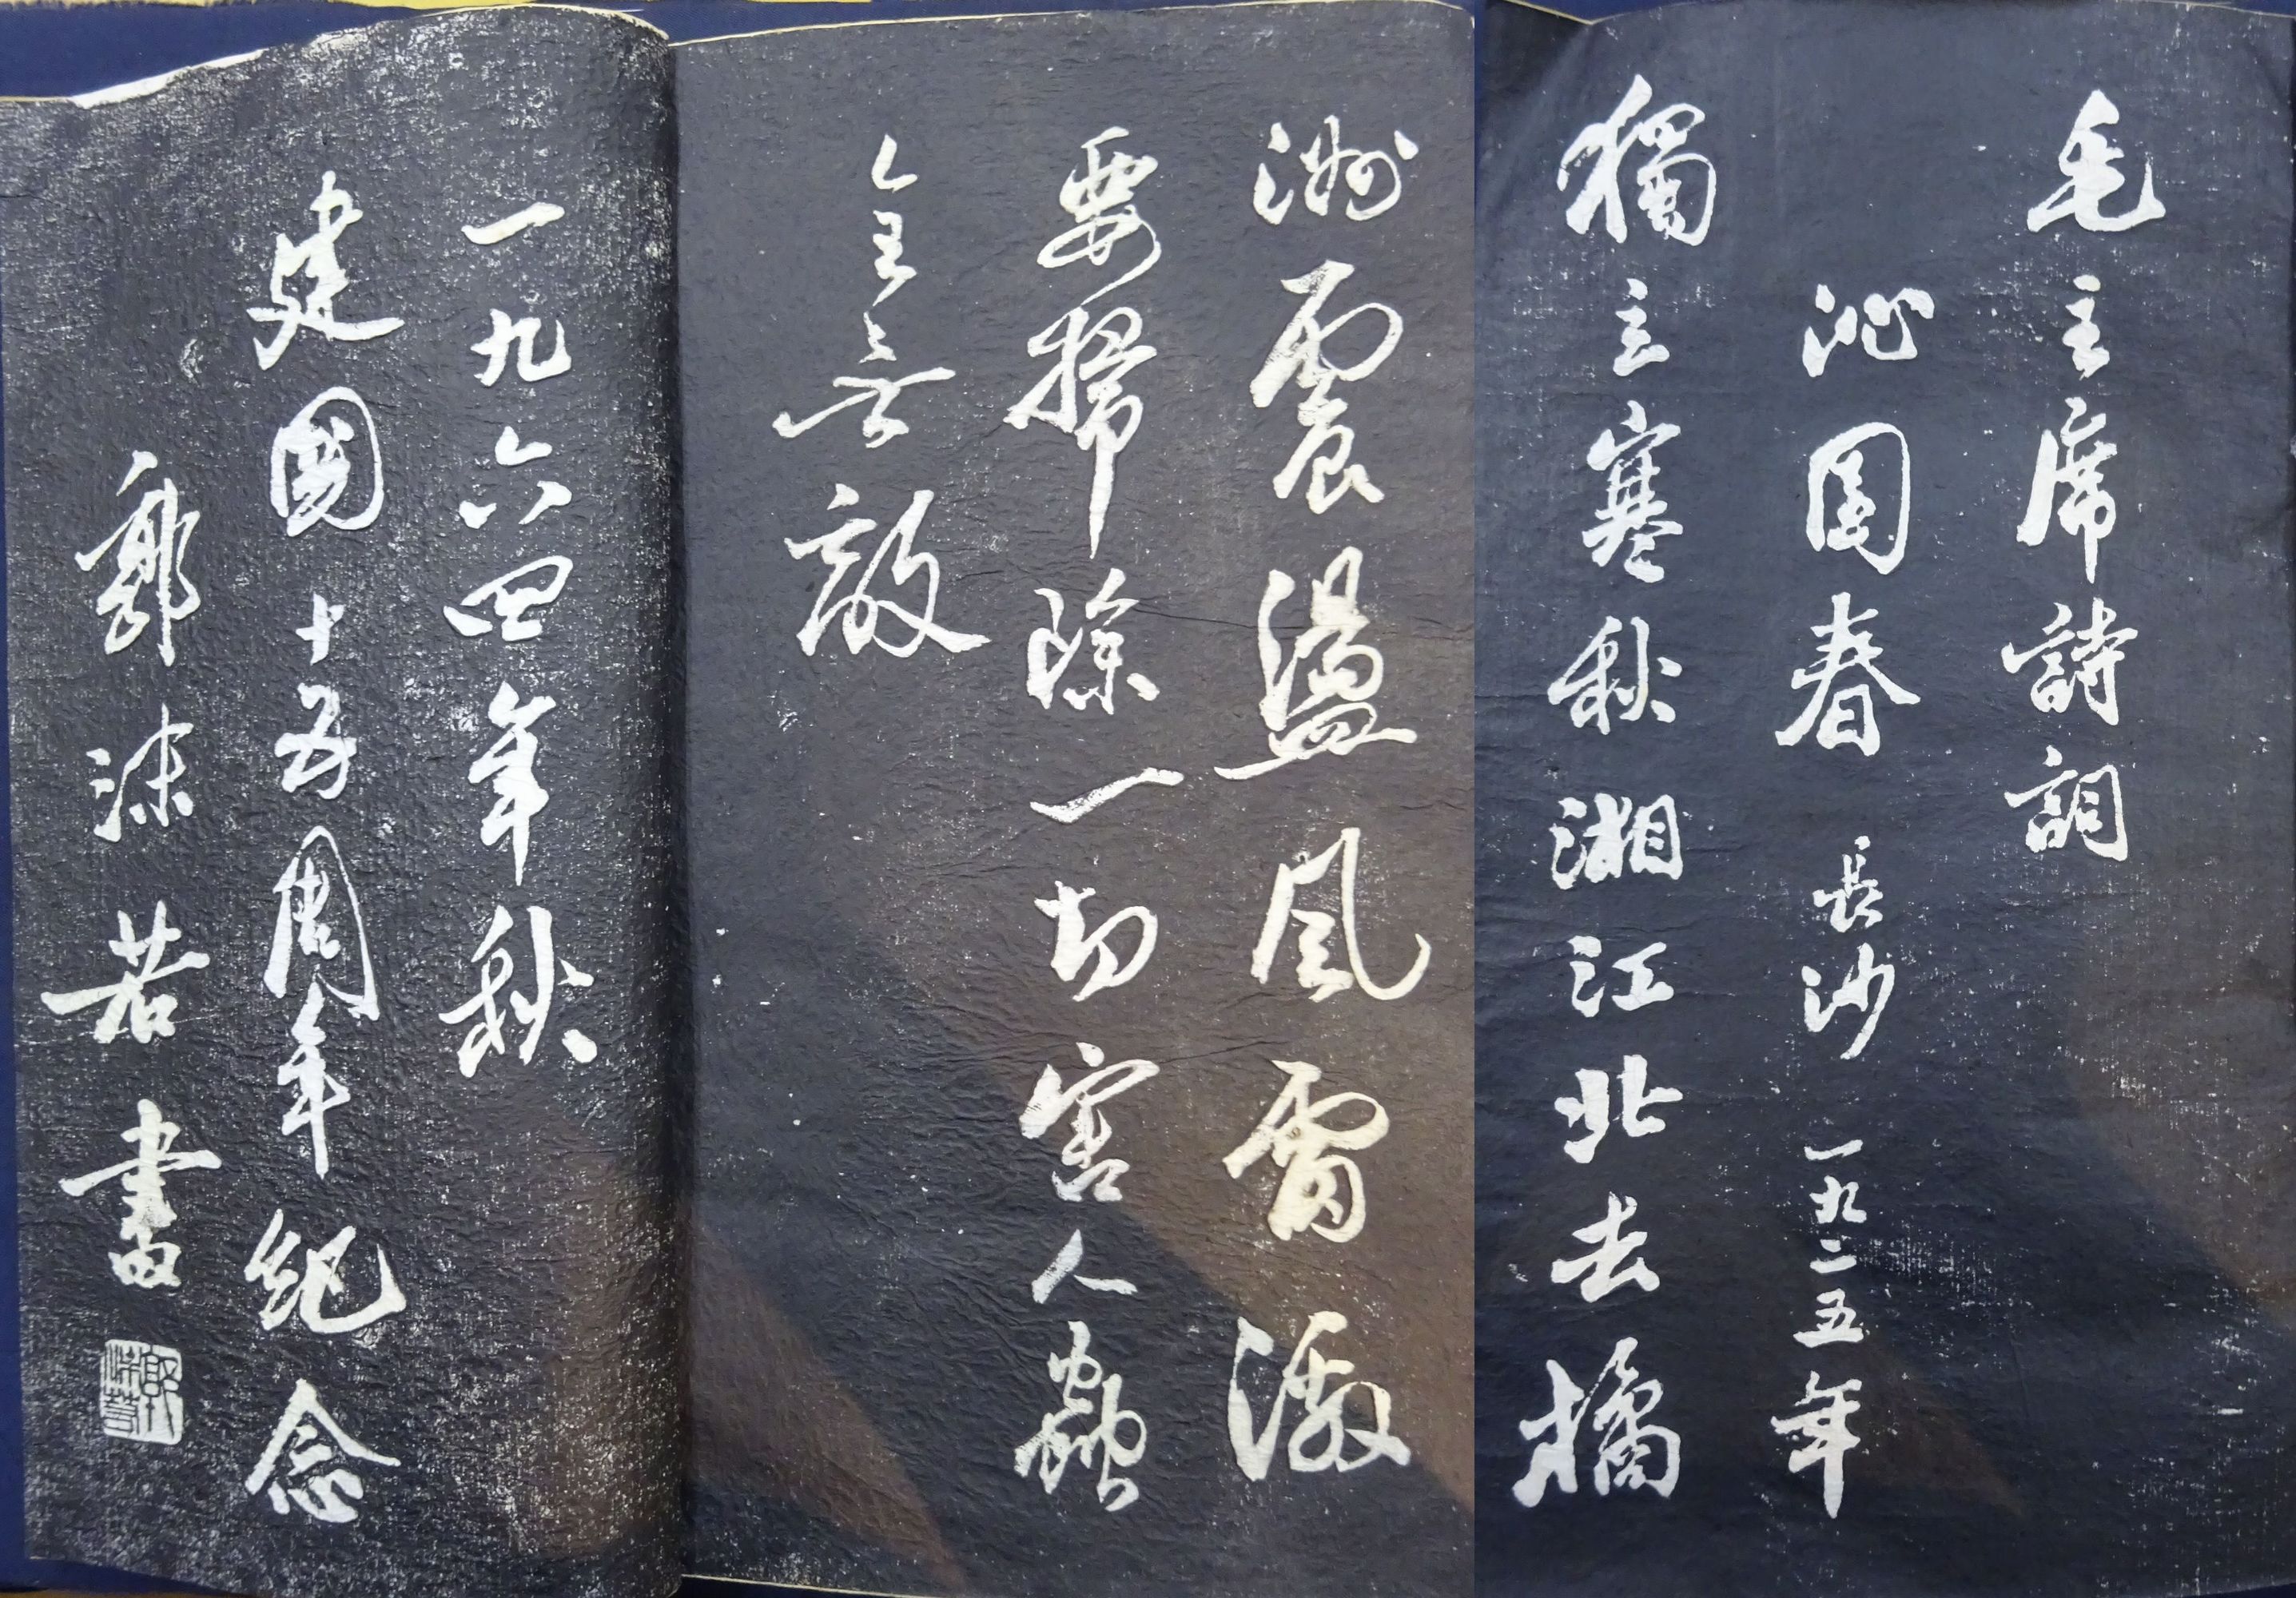 毛主席詩詞
沁园春 長沙 一九二五年
獨立寒秋湘江北去橘
洲震盪風雷激
要掃除一切害人蟲
全無敵
一九六四年秋
建國十五周年紀念
郭沫若書
郭沫若